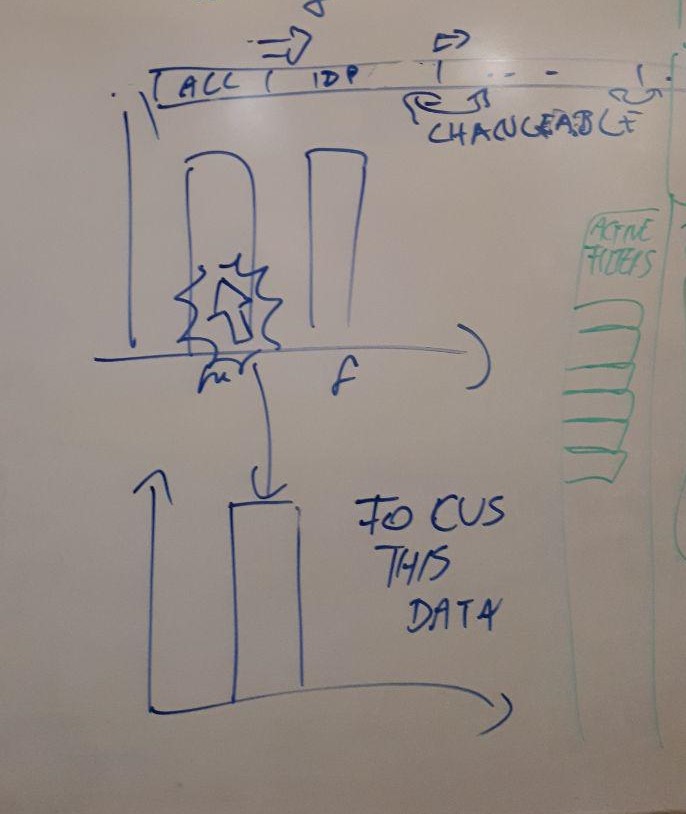 ACC | IDP | -- - |
CHANGEABLE
ACTIVE
FILTERS
m f
FOCUS
THIS
DATA